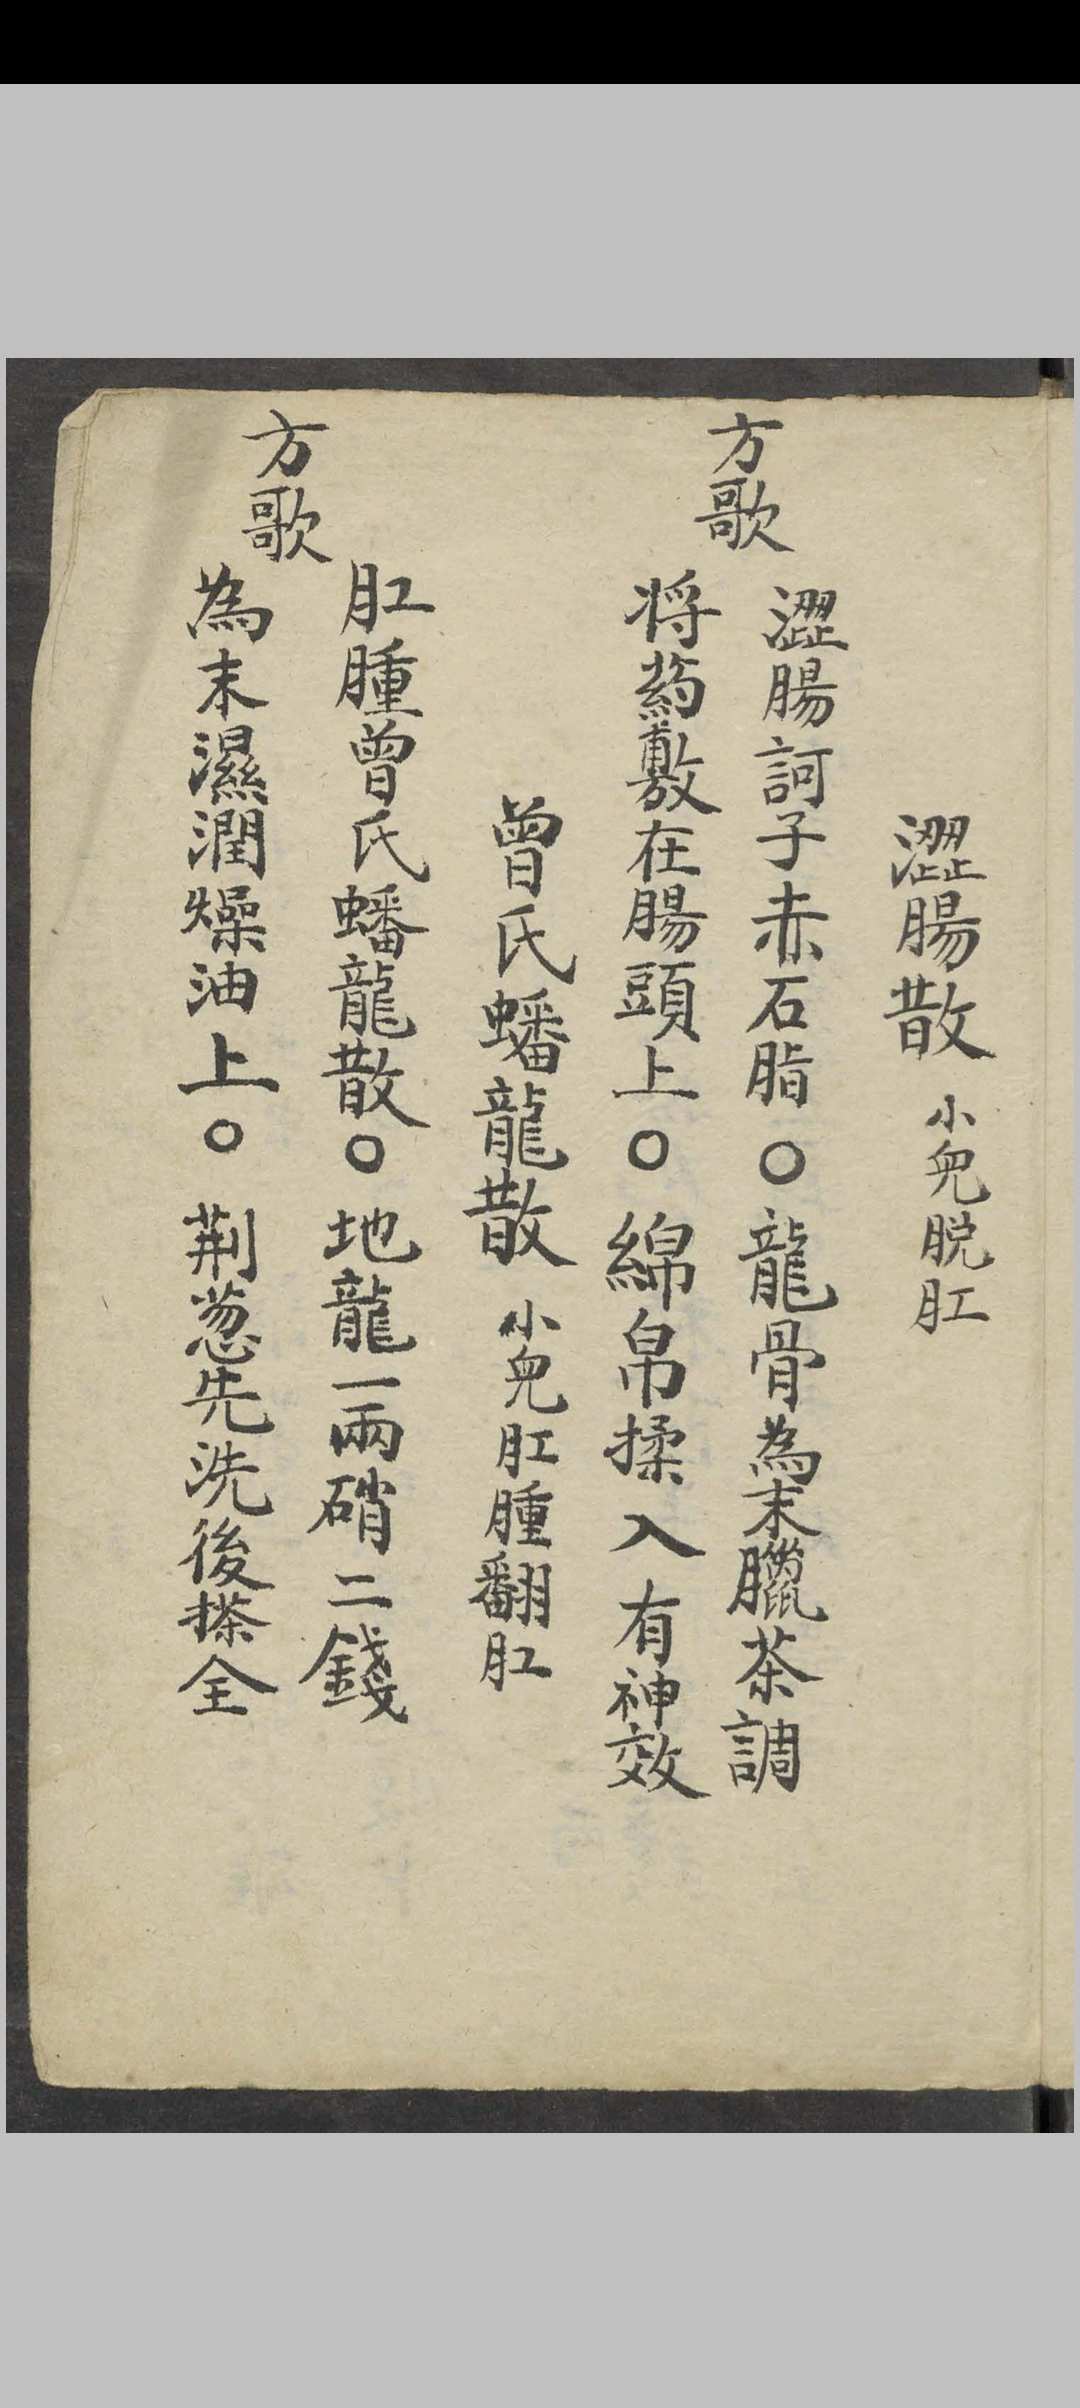 澀腸散 小兒脫肛
方歌
澀腸訶子赤石脂○龍骨為末臘茶調
将药敷在腸頭上○綿帛揉入有神效
曾氏蟠龍散 小兒肛腫翻肛
方歌
肛腫曾氏蟠龍散○地龍一兩硝二錢
為末濕潤燥油上○荆葱先洗後搽全